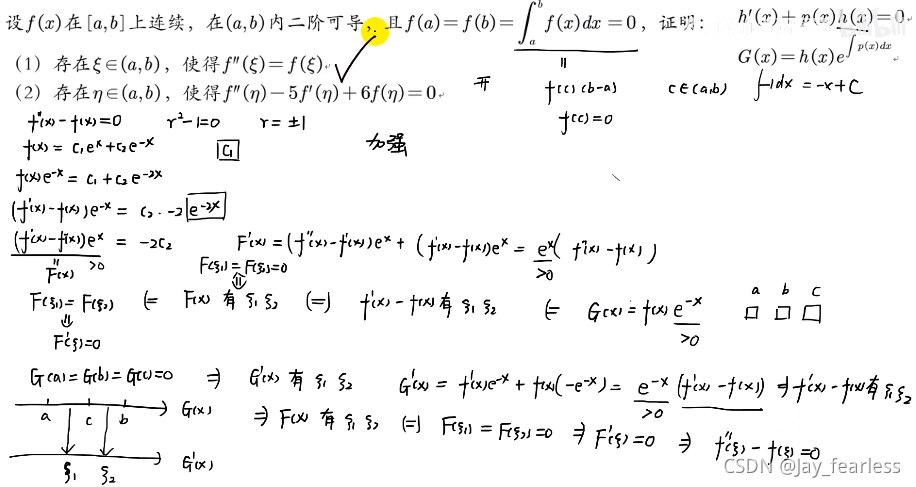 设f(x)在[a,b]上连续，在(a,b)内二阶可导，且f(a)=f(b)=∫_a^b f(x)dx=0，证明：
h'(x)+p(x)h(x)=0
G(x)=h(x)e^{∫p(x)dx}
（1）存在ξ∈(a,b)，使得f''(ξ)=f(ξ)
（2）存在η∈(a,b)，使得f''(η)-5f'(η)+6f(η)=0
开 f(c)(b-a) c∈(a,b) ∫-1dx=-x+C
f(c)=0
f''(x)-f(x)=0 r²-1=0 r=±1
加强
f(x)=C₁e^x+C₂e^{-x} C₁
f(x)e^{-x}=C₁+C₂e^{-2x}
(f'(x)-f(x))e^{-x}=C₂·-2e^{-2x}
(f'(x)-f(x))e^x=-2C₂ F'(x)=(f''(x)-f'(x))e^x+(f'(x)-f(x))e^x=e^x(f''(x)-f(x))
F(x) >0 F(ξ₁)=F(ξ₂)=0 >0
F(ξ₁)=F(ξ₂) ⇐ F(x)有ξ₁ξ₂ ⇔ f'(x)-f(x)有ξ₁ξ₂ ⇐ G(x)=f(x)e^{-x} a b c
⇓ >0 □ □ □
F'(ξ)=0
G(a)=G(b)=G(c)=0 ⇒ G'(x)有ξ₁ξ₂ G'(x)=f'(x)e^{-x}+f(x)(-e^{-x})=e^{-x}(f'(x)-f(x)) ⇒ f'(x)-f(x)有ξ₁ξ₂
>0
a c b G(x) ⇒ F(x)有ξ₁ξ₂ ⇔ F(ξ₁)=F(ξ₂)=0 ⇒ F'(ξ)=0 ⇒ f''(ξ)-f(ξ)=0
ξ₁ ξ₂ G'(x)
CSDN @Jay_fearless